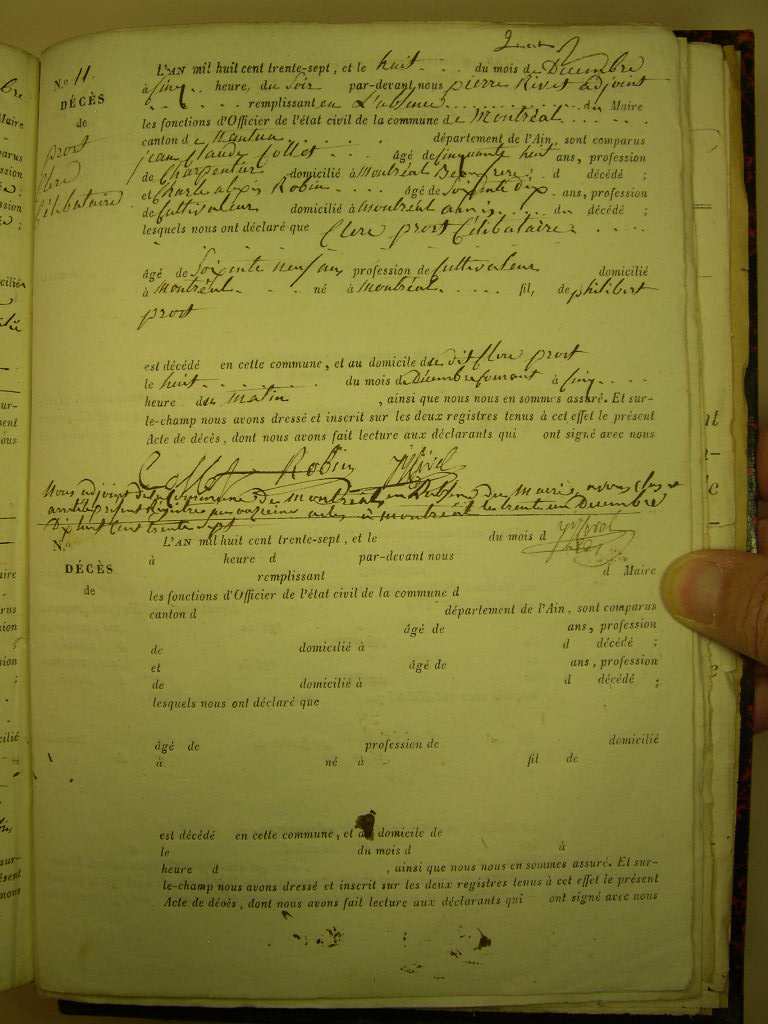 N.o 11.
DÉCÈS
de
prost
Clere
Célibataire
L'AN mil huit cent trente-sept, et le huit du mois de Décembre
à cinq heure, du soir par-devant nous pierre Rivet adjoint
remplissant en L'absence du Maire
les fonctions d'Officier de l'état civil de la commune de Montréal
canton de Nantua département de l'Ain, sont comparus
jean Claude Collet âgé de cinquante huit ans, profession
de Charpentier domicilié à Montréal Beaufrere d décédé ;
et Charle alexis Robin âgé de soixente dix ans, profession
de Cultivateur domicilié à Montréal amis du décédé ;
lesquels nous ont déclaré que Clere prost Célibataire
âgé de Soixente neuf ans profession de Cultivateur domicilié
à Montréal né à Montréal fil, de philibert
prost
est décédé en cette commune, et au domicile de dit Clere prost
le huit du mois de Décembre courant à cinq
heure du Matin , ainsi que nous nous en sommes assuré. Et sur-
le-champ nous avons dressé et inscrit sur les deux registres tenus à cet effet le présent
Acte de décès, dont nous avons fait lecture aux déclarants qui ont signé avec nous
Collet Robin
Nous adjoint de la Commune de Montréal en du Maire, avons clos et
arrêté présent Registre a onzieme actes à Montréal le trente un Décembre
Dix huit Cent trente Sept
N.o
DÉCÈS
de
L'AN mil huit cent trente-sept, et le du mois d
à heure d par-devant nous
remplissant d Maire
les fonctions d'Officier de l'état civil de la commune d
canton d département de l'Ain, sont comparus
âgé de ans, profession
de domicilié à d décédé ;
et âgé de ans, profession
de domicilié à d décédé ;
lesquels nous ont déclaré que
âgé de profession de domicilié
à né à fil de
est décédé en cette commune, et au domicile de
le du mois d à
heure d , ainsi que nous nous en sommes assuré. Et sur-
le-champ nous avons dressé et inscrit sur les deux registres tenus à cet effet le présent
Acte de décès, dont nous avons fait lecture aux déclarants qui ont signé avec nous